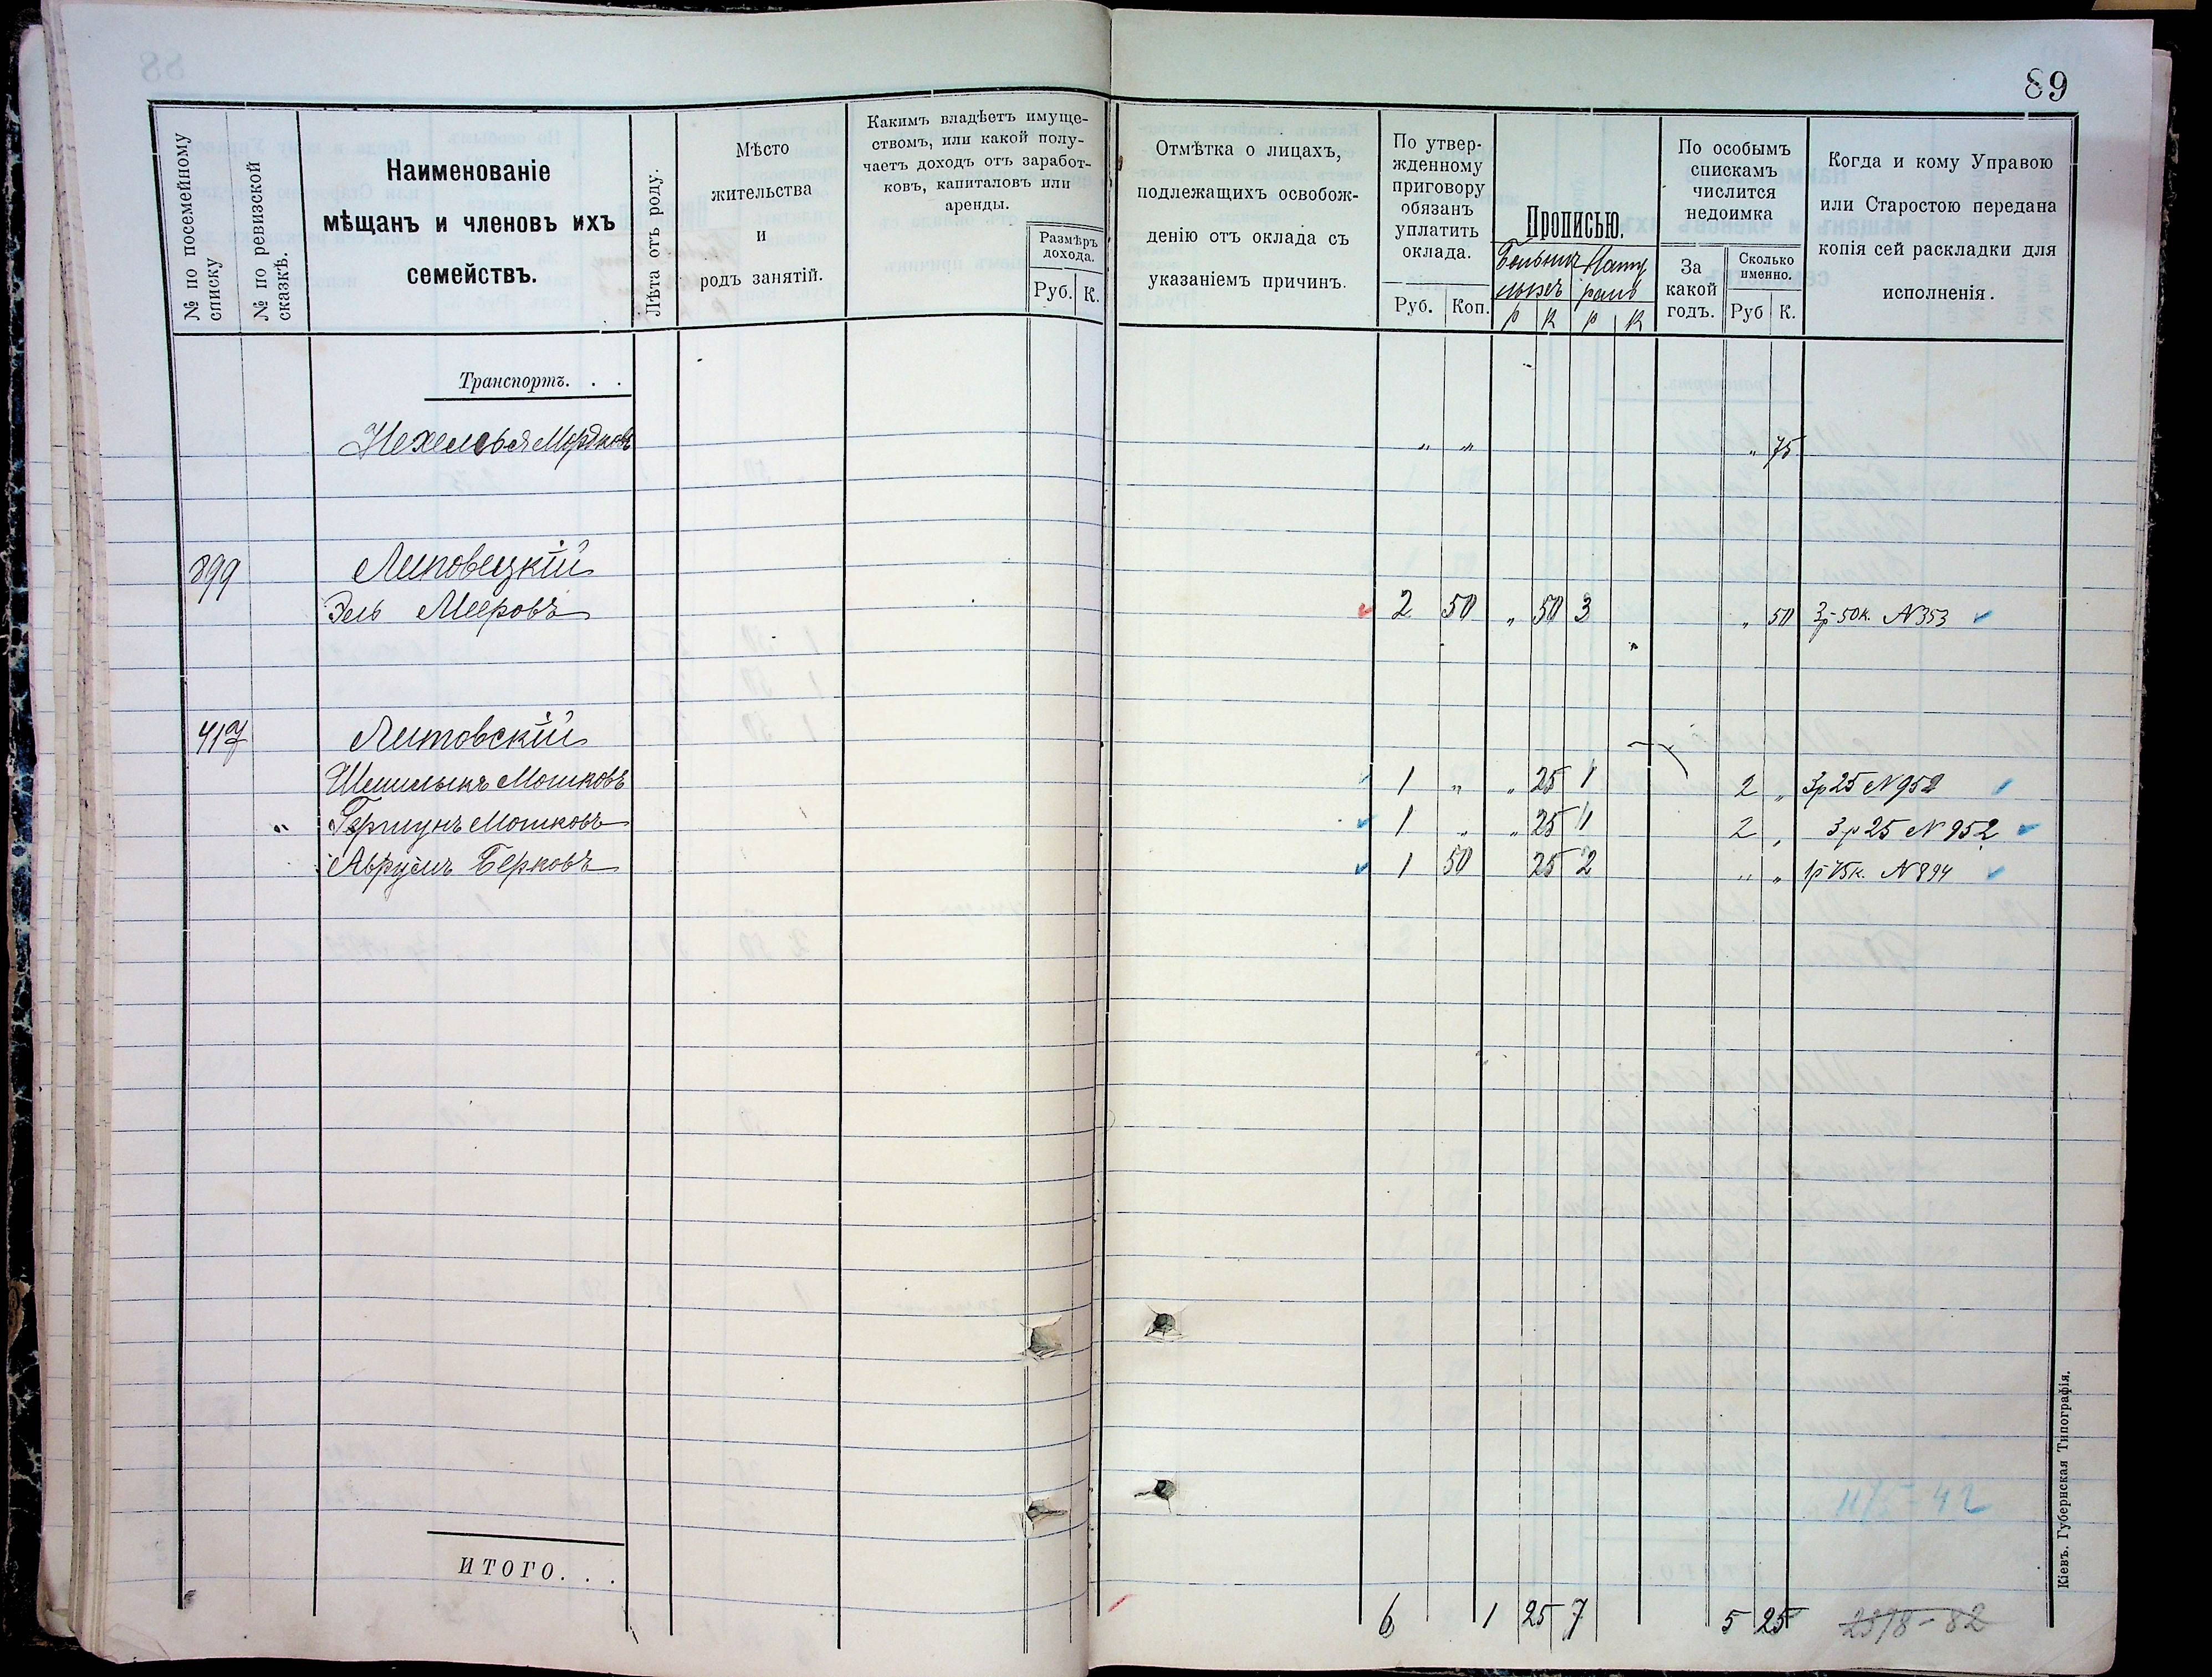 89
№ по посемейному списку
№ по ревизской сказкѣ.
Наименованіе
мѣщанъ и членовъ ихъ
семействъ.
Лѣта отъ роду.
Мѣсто
жительства
и
родъ занятій.
Какимъ владѣетъ имуще-
ствомъ, или какой полу-
чаетъ доходъ отъ заработ-
ковъ, капиталовъ или
аренды.
Размѣръ
дохода.
Руб. К.
Отмѣтка о лицахъ,
подлежащихъ освобож-
денію отъ оклада съ
указаніемъ причинъ.
По утвер-
жденному
приговору
обязанъ
уплатить
оклада.
Руб. Коп.
Прописью.
р к р к
По особымъ
спискамъ
числится
недоимка
За
какой
годъ.
Сколько
именно.
Руб К.
Когда и кому Управою
или Старостою передана
копія сей раскладки для
исполненія.
Транспортъ. . .
Мордковъ „ „ „ 75
899 Липовецкій
Эль Мееровъ 2 50 „ 50 3 „ 50 3р-50к. N353
417 Литовскій
Мошковъ 1 „ „ 25 1 2 „ 3р25 N952
„ Гершунъ Мошковъ 1 „ „ 25 1 2 „ 3р25 N952
Аврумъ Берковъ 1 50 25 2 „ „ 1р75к. N894
ИТОГО. . .
6 1 25 7 5 25
2378-82
Кіевъ. Губернская Типографія.